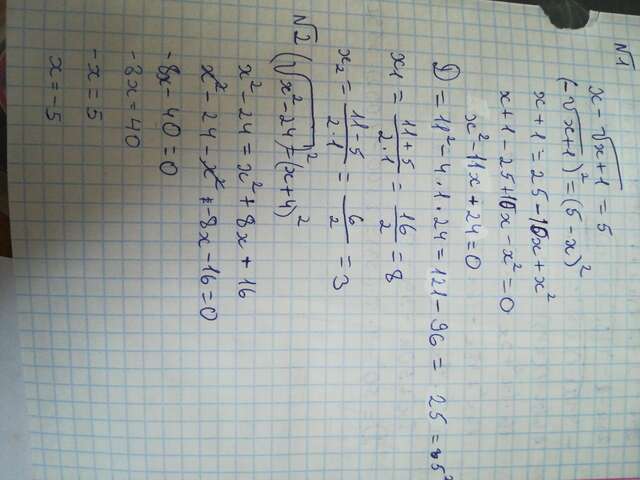 №1
x - √x+1 = 5
(-√x+1)² = (5 - x)²
x + 1 = 25 - 10x + x²
x + 1 - 25 + 10x - x² = 0
x² - 11x + 24 = 0
D = 11² - 4·1·24 = 121 - 96 = 25 = 5²
x₁ = (11+5)/(2·1) = 16/2 = 8
x₂ = (11-5)/(2·1) = 6/2 = 3
№2 (√x²-24)² = (x+4)²
x² - 24 = x² + 8x + 16
x² - 24 - x² - 8x - 16 = 0
-8x - 40 = 0
-8x = 40
-x = 5
x = -5